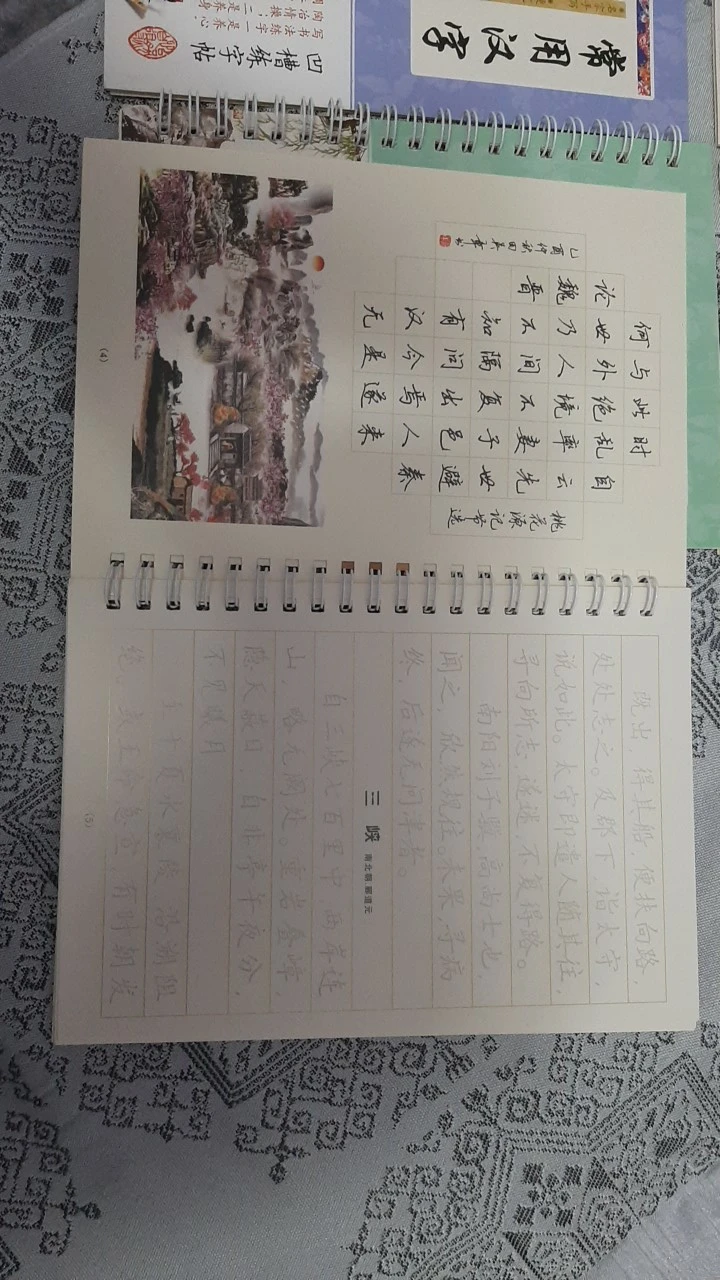 常用汉字
凹槽练字帖
写书法练字一是养心
陶冶情操；二是养身
桃花源记节选
自云先世避秦
时乱率妻子邑人来
此绝境不复出焉遂
与外人间隔问今是
何世乃不知有汉无
论魏晋
乙酉仲秋田英章书
(4)
既出，得其船，便扶向路，
处处志之。及郡下，诣太守，
说如此。太守即遣人随其往，
寻向所志，遂迷，不复得路。
南阳刘子骥，高尚士也，
闻之，欣然规往。未果，寻病
终，后遂无问津者。
三峡 南北朝·郦道元
自三峡七百里中，两岸连
山，略无阙处。重岩叠嶂，
隐天蔽日，自非亭午夜分，
不见曦月
至于夏水襄陵，沿溯阻
绝。或王命急宣，有时朝发
(5)